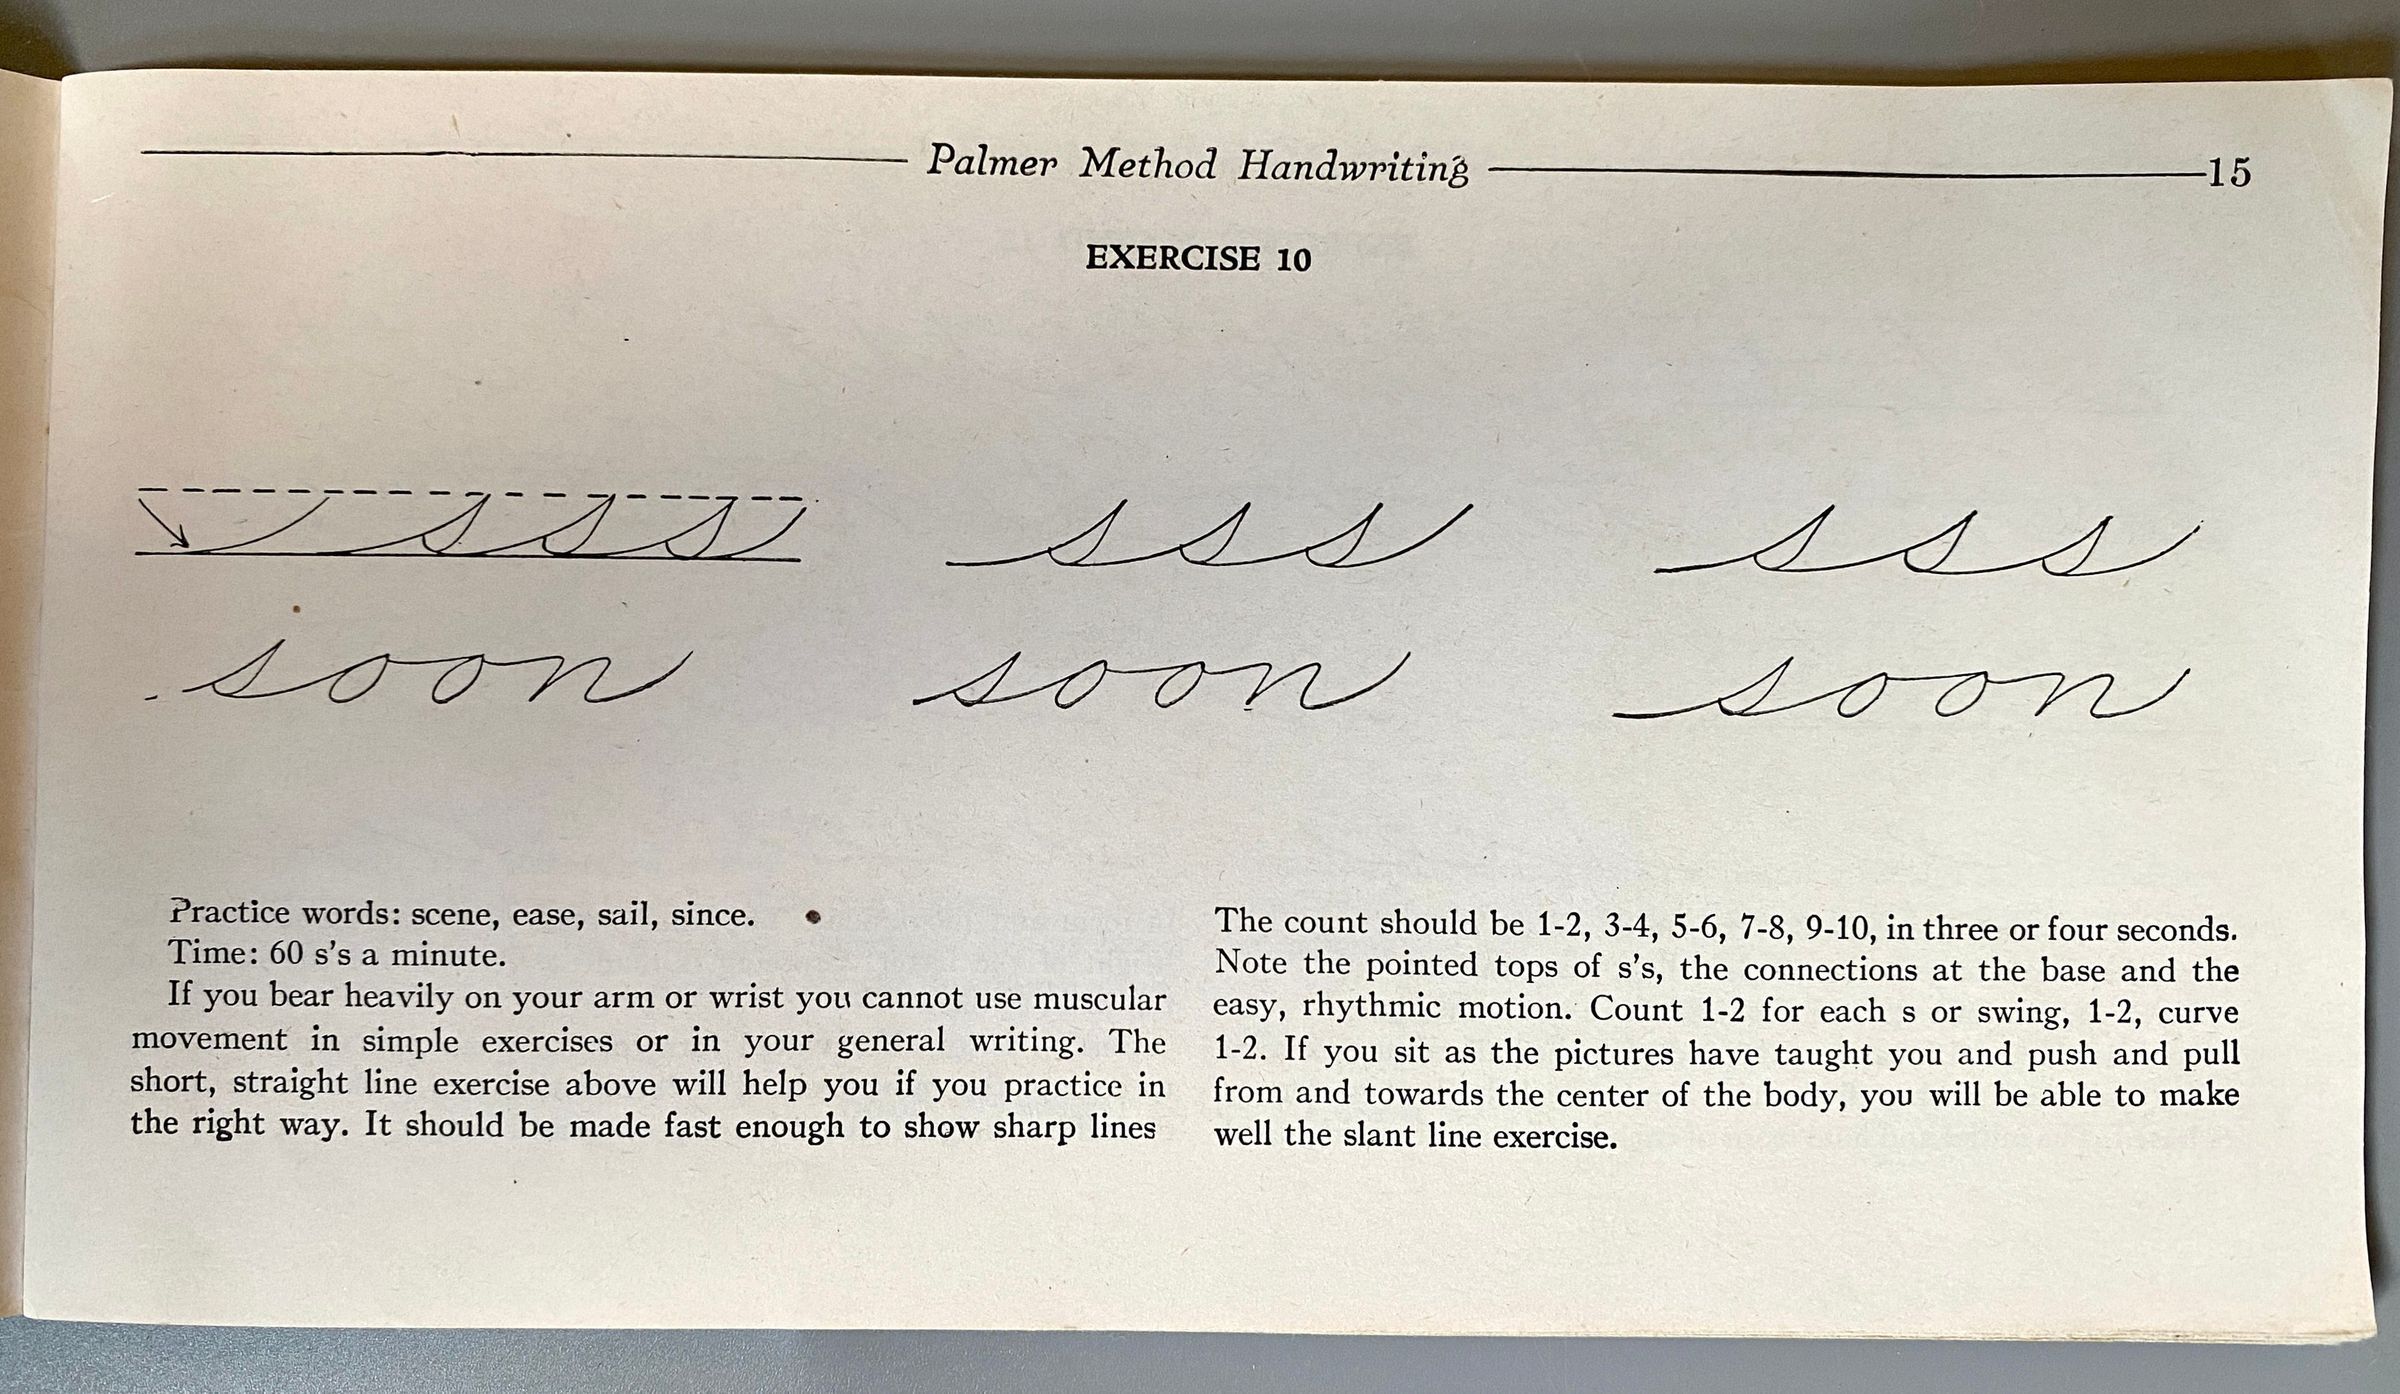 Palmer Method Handwriting 15
EXERCISE 10
s s s s s s s s s
soon soon soon
Practice words: scene, ease, sail, since.
Time: 60 s's a minute.
If you bear heavily on your arm or wrist you cannot use muscular
movement in simple exercises or in your general writing. The
short, straight line exercise above will help you if you practice in
the right way. It should be made fast enough to show sharp lines
The count should be 1-2, 3-4, 5-6, 7-8, 9-10, in three or four seconds.
Note the pointed tops of s's, the connections at the base and the
easy, rhythmic motion. Count 1-2 for each s or swing, 1-2, curve
1-2. If you sit as the pictures have taught you and push and pull
from and towards the center of the body, you will be able to make
well the slant line exercise.